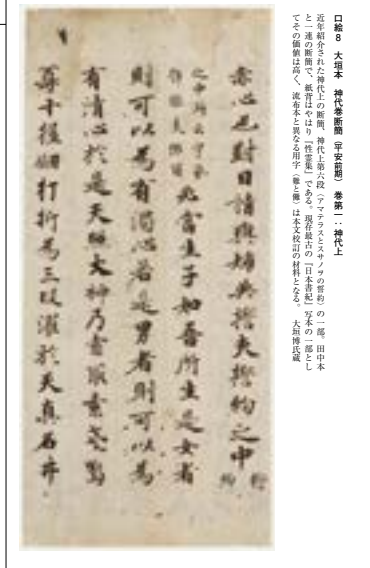 口絵8　大垣本　神代巻断簡（平安前期）　巻第一：神代上
近年紹介された神代上の断簡。神代上第六段（アマテラスとスサノヲの誓約）の一部。田中本
と一連の断簡で、紙背はやはり『性霊集』である。現存最古の『日本書紀』写本の一部とし
てその価値は高く、流布本と異なる用字は本文校訂の材料となる。　大垣博氏蔵
赤心也対曰請与姉共誓夫誓約之中
必当生子如吾所生是女者
則可以為有濁心若是男者則可以為
有清心於是天照大神乃索取素戔鳴
尊十握剣打折為三段濯於天真名井